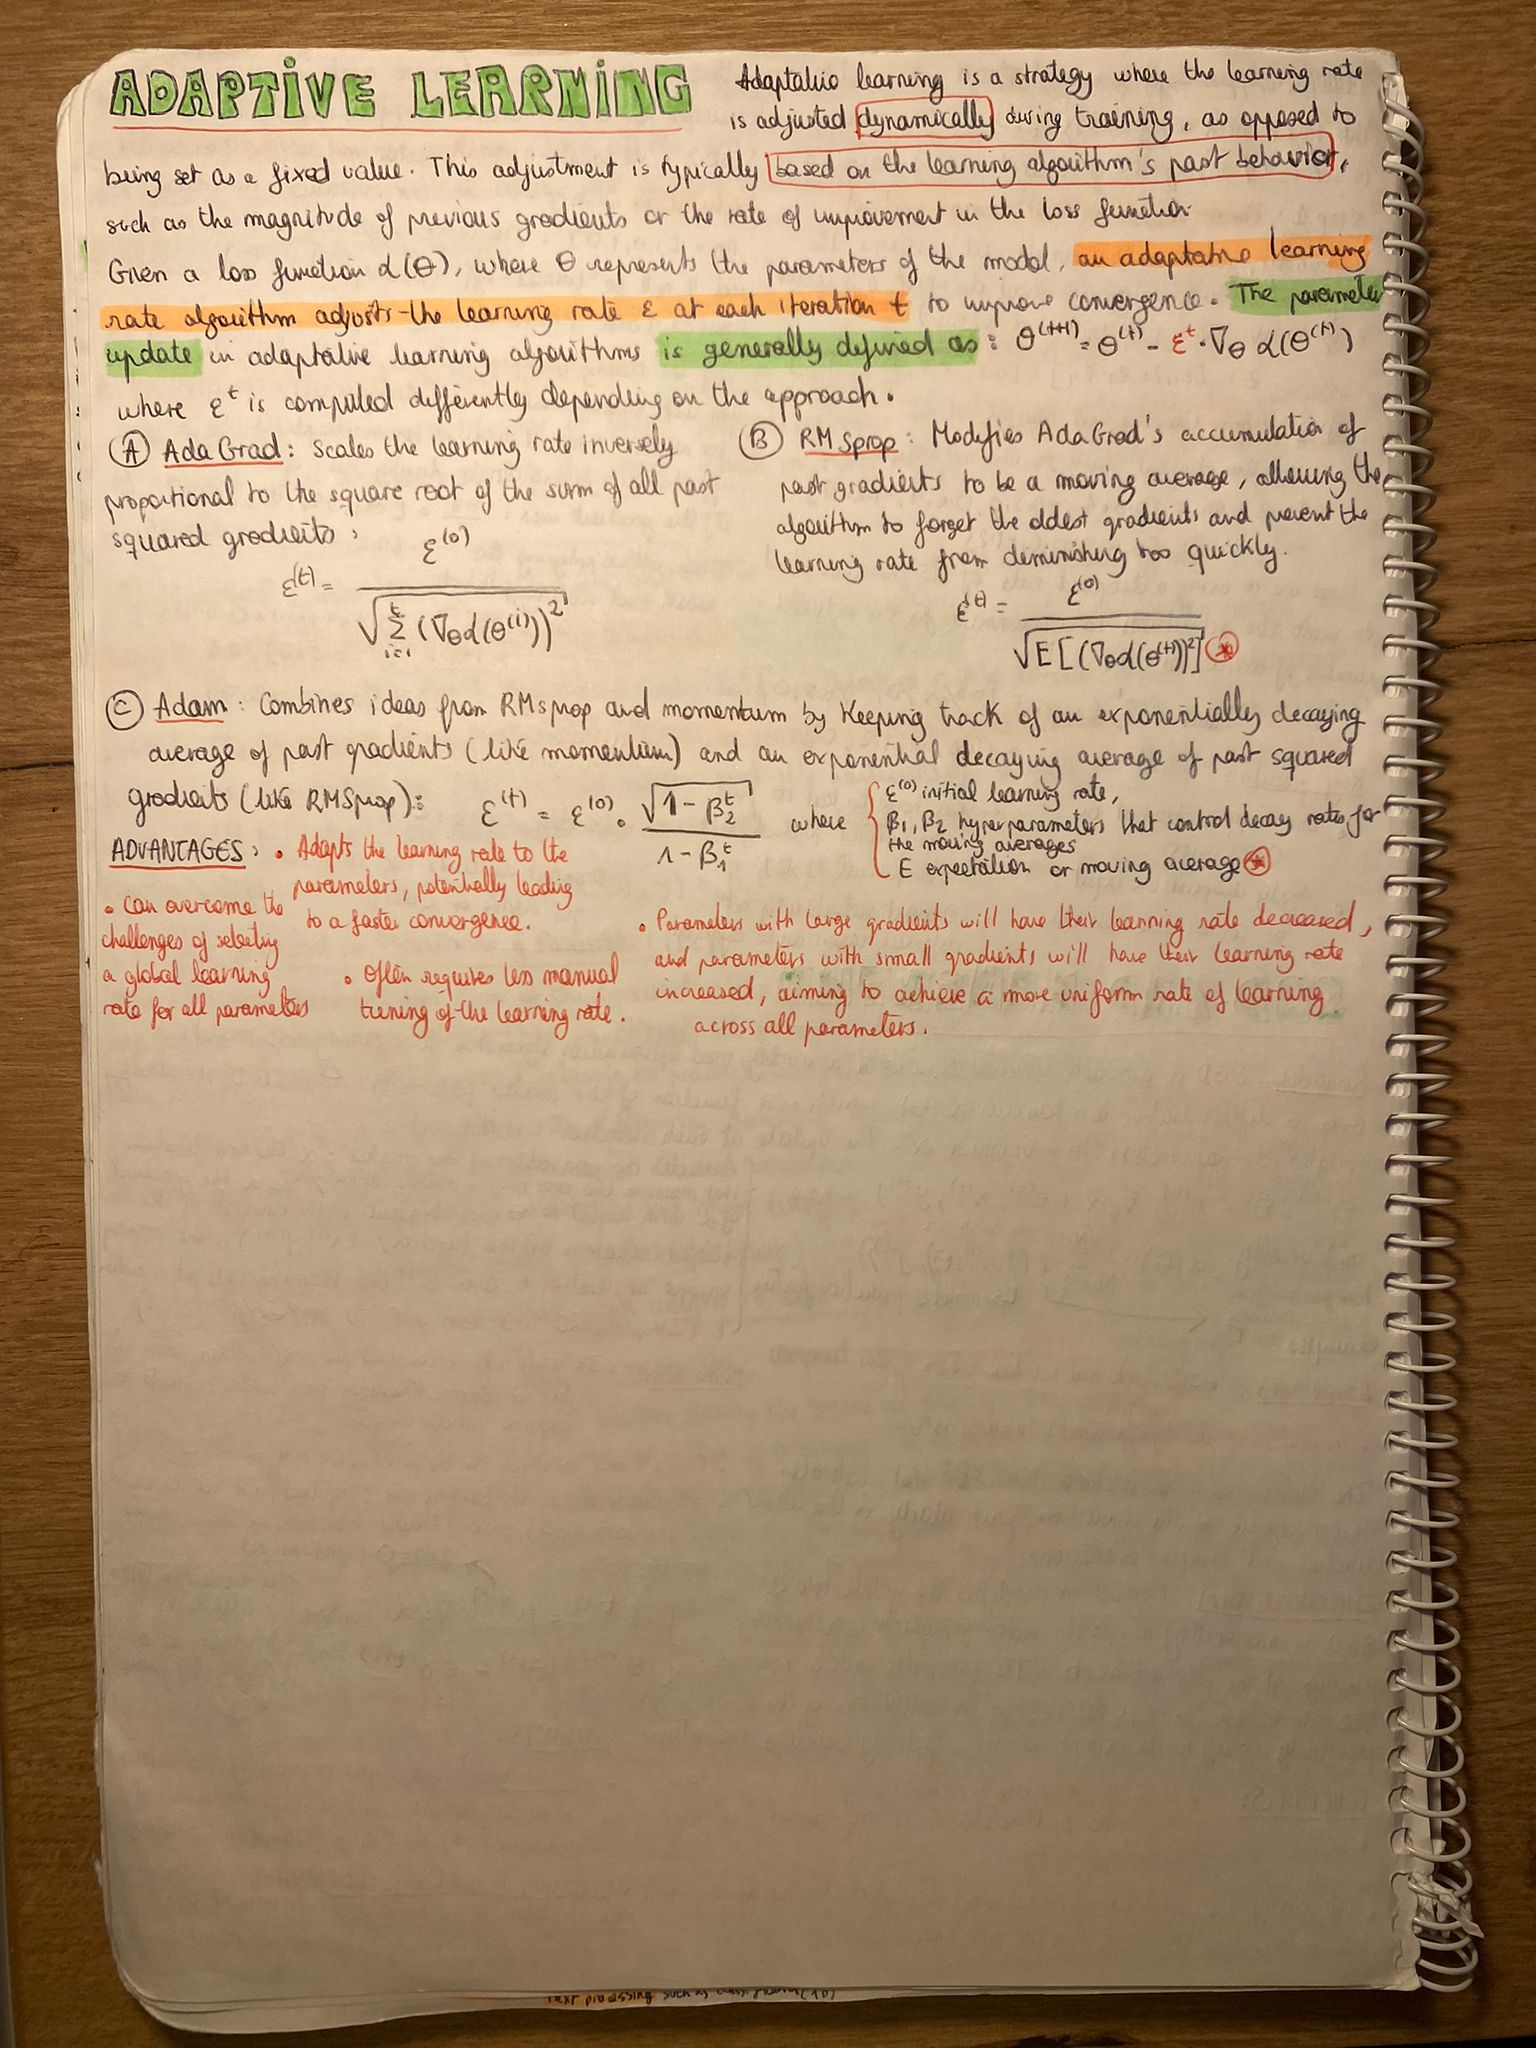 ADAPTIVE LEARNING
Adaptative learning is a strategy where the learning rate
is adjusted dynamically during training, as opposed to
being set as a fixed value. This adjustment is typically based on the learning algorithm's past behavior,
such as the magnitude of previous gradients or the rate of improvement in the loss function
Given a loss function α(θ), where θ represents the parameters of the model, an adaptative learning
rate algorithm adjusts the learning rate ε at each iteration t to improve convergence. The parameter
update in adaptative learning algorithms is generally defined as: θ^(t+1) = θ^(t) - ε^t · ∇θ α(θ^(t))
where ε^t is computed differently depending on the approach.
(A) AdaGrad: Scales the learning rate inversely
proportional to the square root of the sum of all past
squared gradients:
ε^(t) = ε^(0) / √(Σ_{i=1}^{t} (∇θ α(θ^(i)))^2)
(B) RMSprop: Modifies AdaGrad's accumulation of
past gradients to be a moving average, allowing the
algorithm to forget the oldest gradients and prevent the
learning rate from deminishing too quickly.
ε^(t) = ε^(0) / √(E[(∇θ α(θ^(t)))^2]) *
(C) Adam: Combines ideas from RMSprop and momentum by Keeping track of an exponentially decaying
average of past gradients (like momentum) and an exponential decaying average of past squared
gradients (like RMSprop): ε^(t) = ε^(0) · √(1-β_2^t) / (1-β_1^t) where
ε^(0) initial learning rate,
β1, β2 hyperparameters that control decay rates for
the moving averages
E expectation or moving average *
ADVANTAGES:
• Adapts the learning rate to the
parameters, potentially leading
to a faster convergence.
• Can overcome the
challenges of selecting
a global learning
rate for all parameters
• Often requires less manual
tuning of the learning rate.
• Parameters with large gradients will have their learning rate decreased,
and parameters with small gradients will have their learning rate
increased, aiming to achieve a more uniform rate of learning
across all parameters.
text processing such as